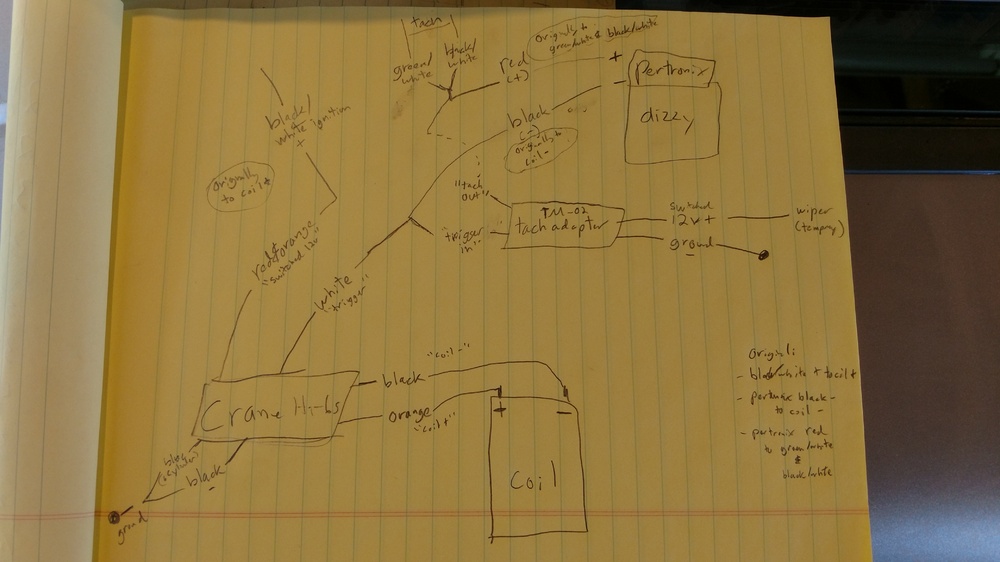 tach
green/
white
black/
white
red
(+)
originally to
green/white & black/white
+
-
Pertronix
dizzy
black/
white ignition
+
originally
to coil +
black
(-)
originally to
coil -
"tach
out"
TM-02
tach adapter
"trigger
in"
switched
12v+
ground
wiper
(tempry)
red & orange
"switched 12v"
white
"trigger"
Crane Hi-6s
black
"coil -"
orange
"coil +"
+
-
coil
black
ground
Original:
- black/white + to coil +
- pertronix black -
to coil -
- pertronix red
to green/white
&
black/white